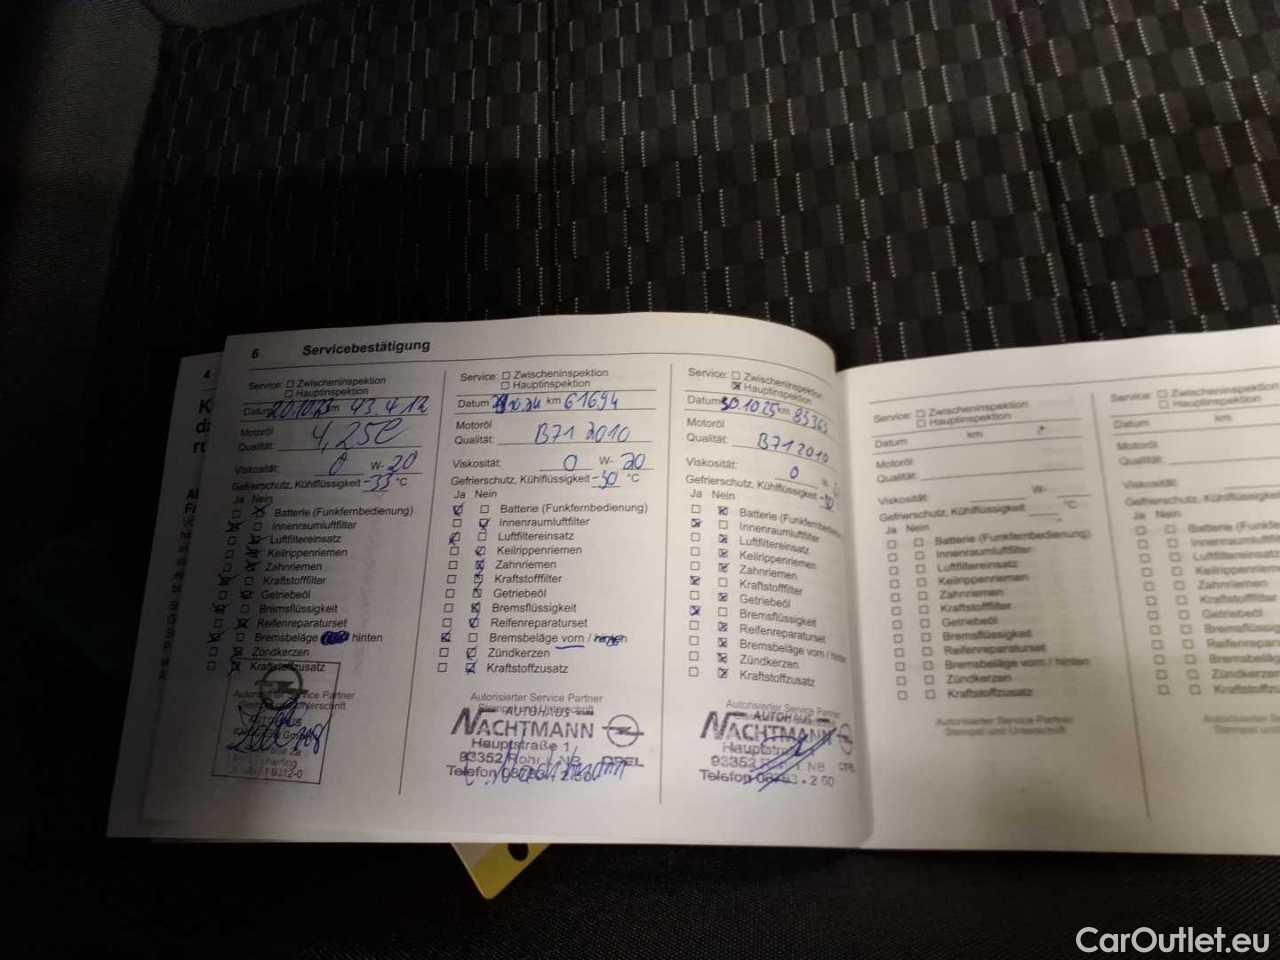 4
6 Servicebestätigung
Service: Zwischeninspektion
Hauptinspektion
Datum 20.10.23 km 43.412
Motoröl
Qualität: 4,25l
Viskosität: 0 W- 20
Gefrierschutz, Kühlflüssigkeit -33 °C
Ja Nein
Batterie (Funkfernbedienung)
Innenraumluftfilter
Luftfiltereinsatz
Keilrippenriemen
Zahnriemen
Kraftstofffilter
Getriebeöl
Bremsflüssigkeit
Reifenreparaturset
Bremsbeläge hinten
Zündkerzen
Kraftstoffzusatz
Autorisierter Service Partner
Service: Zwischeninspektion
Hauptinspektion
Datum 10.24 km 61694
Motoröl
Qualität: B71 2010
Viskosität: 0 W- 20
Gefrierschutz, Kühlflüssigkeit -30 °C
Ja Nein
Batterie (Funkfernbedienung)
Innenraumluftfilter
Luftfiltereinsatz
Keilrippenriemen
Zahnriemen
Kraftstofffilter
Getriebeöl
Bremsflüssigkeit
Reifenreparaturset
Bremsbeläge vorn / hinten
Zündkerzen
Kraftstoffzusatz
Autorisierter Service Partner
Stempel und Unterschrift
AUTOHAUS
NACHTMANN
Hauptstraße 1
93352 Rohr i. NB OPEL
Telefon
Service: Zwischeninspektion
Hauptinspektion
Datum 30.10.25 km 83365
Motoröl
Qualität: B71 2010
Viskosität: 0 W-
Gefrierschutz, Kühlflüssigkeit -30
Ja Nein
Batterie (Funkfernbedie
Innenraumluftfilter
Luftfiltereinsatz
Keilrippenriemen
Zahnriemen
Kraftstofffilter
Getriebeöl
Bremsflüssigkeit
Reifenreparaturset
Bremsbeläge vorn / hinten
Zündkerzen
Kraftstoffzusatz
Autorisierter Service Partner
AUTOHAUS
NACHTMANN
Hauptstraße 1
93352 Rohr i. NB OPEL
Telefon
Service: Zwischeninspektion
Hauptinspektion
Datum km
Motoröl
Qualität:
Viskosität: W-
Gefrierschutz, Kühlflüssigkeit °C
Ja Nein
Batterie (Funkfernbedienung)
Innenraumluftfilter
Luftfiltereinsatz
Keilrippenriemen
Zahnriemen
Kraftstofffilter
Getriebeöl
Bremsflüssigkeit
Reifenreparaturset
Bremsbeläge vorn / hinten
Zündkerzen
Kraftstoffzusatz
Autorisierter Service Partner
Stempel und Unterschrift
Service: Zwischeninspektion
Hauptinspektion
Datum km
Motoröl
Qualität:
Viskosität:
Gefrierschutz, Kühlflüssig
Ja Nein
Batterie (Funkfern
Innenraumluftfilter
Luftfiltereinsatz
Keilrippenriemen
Zahnriemen
Kraftstofffilter
Getriebeöl
Bremsflüssigkeit
Reifenreparaturset
Bremsbeläge
Zündkerzen
Kraftstoffzusatz
Autorisierter Service
Stempel und Unterschrift
CarOutlet.eu